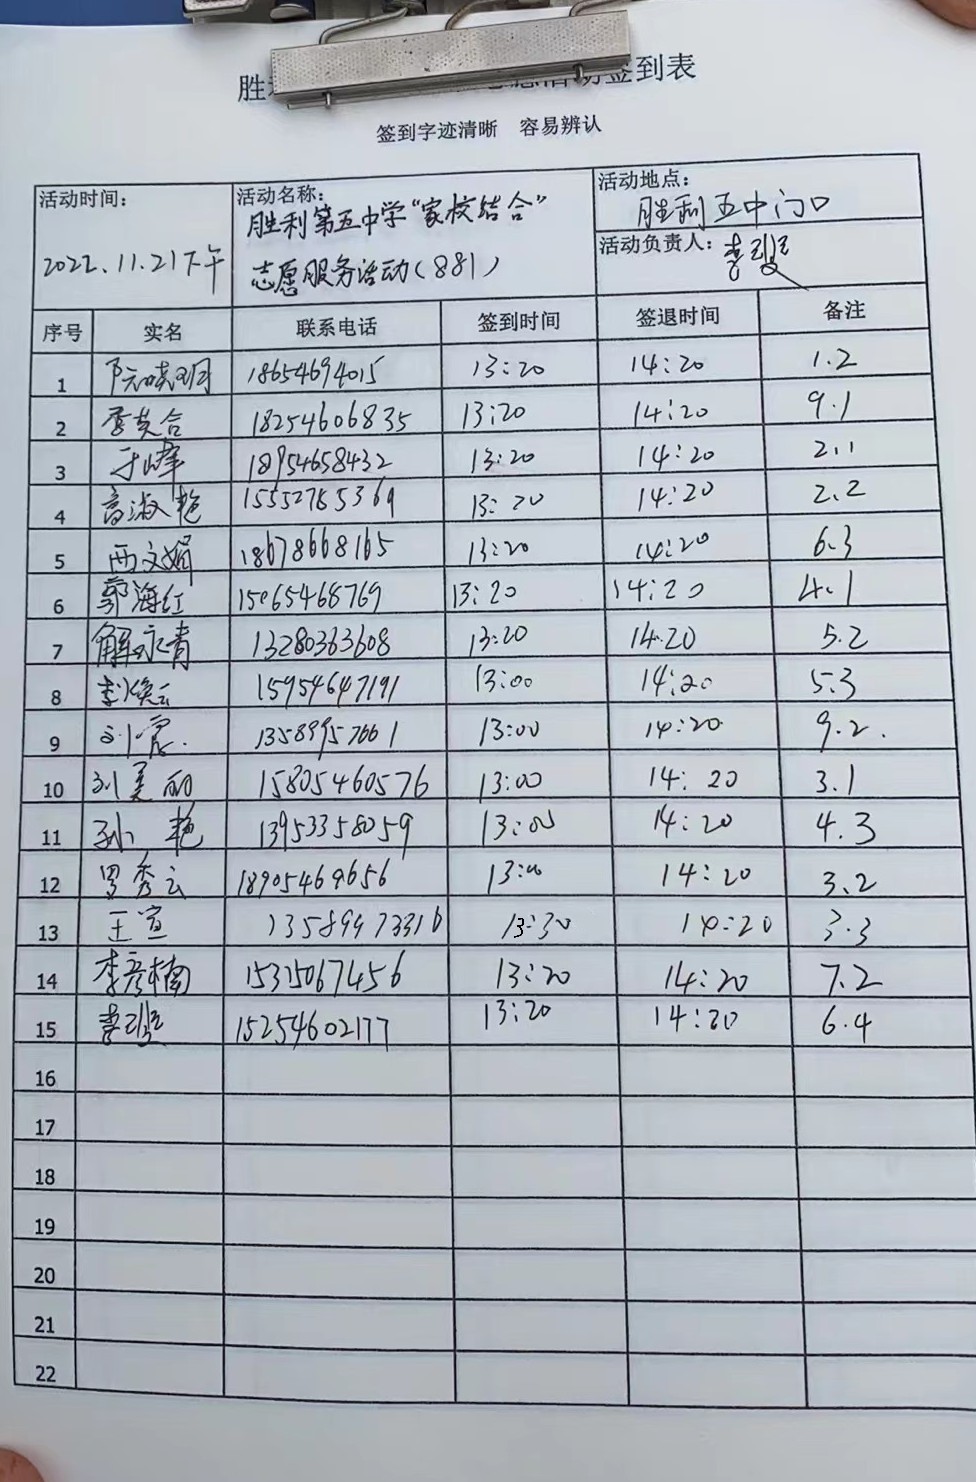 胜 活动签到表
签到字迹清晰 容易辨认
活动时间： 活动名称： 活动地点：
胜利第五中学“家校结合” 胜利五中门口
2022.11.21下午 志愿服务活动（881） 活动负责人：
序号 实名 联系电话 签到时间 签退时间 备注
1 18654694015 13:20 14:20 1.2
2 李英合 18254606835 13:20 14:20 9.1
3 于峰 18954658432 13:20 14:20 2.1
4 高淑艳 15552785369 13:20 14:20 2.2
5 西文娟 18678668165 13:20 14:20 6.3
6 郭海红 15065468769 13:20 14:20 4.1
7 解永青 13280363608 13:20 14.20 5.2
8 李焕云 15954647191 13:00 14:20 5.3
9 刘震. 13589957661 13:00 14:20. 9.2.
10 刘美丽 15805460576 13:00 14:20 3.1
11 孙艳 13953358059 13:00 14:20 4.3
12 罗秀云 18905469656 13:00 14:20 3.2
13 王宣 13589973316 13:30 14:20 3.3
14 李彦楠 15315067456 13:20 14:20 7.2
15 15254602177 13:20 14:20 6.4
16
17
18
19
20
21
22